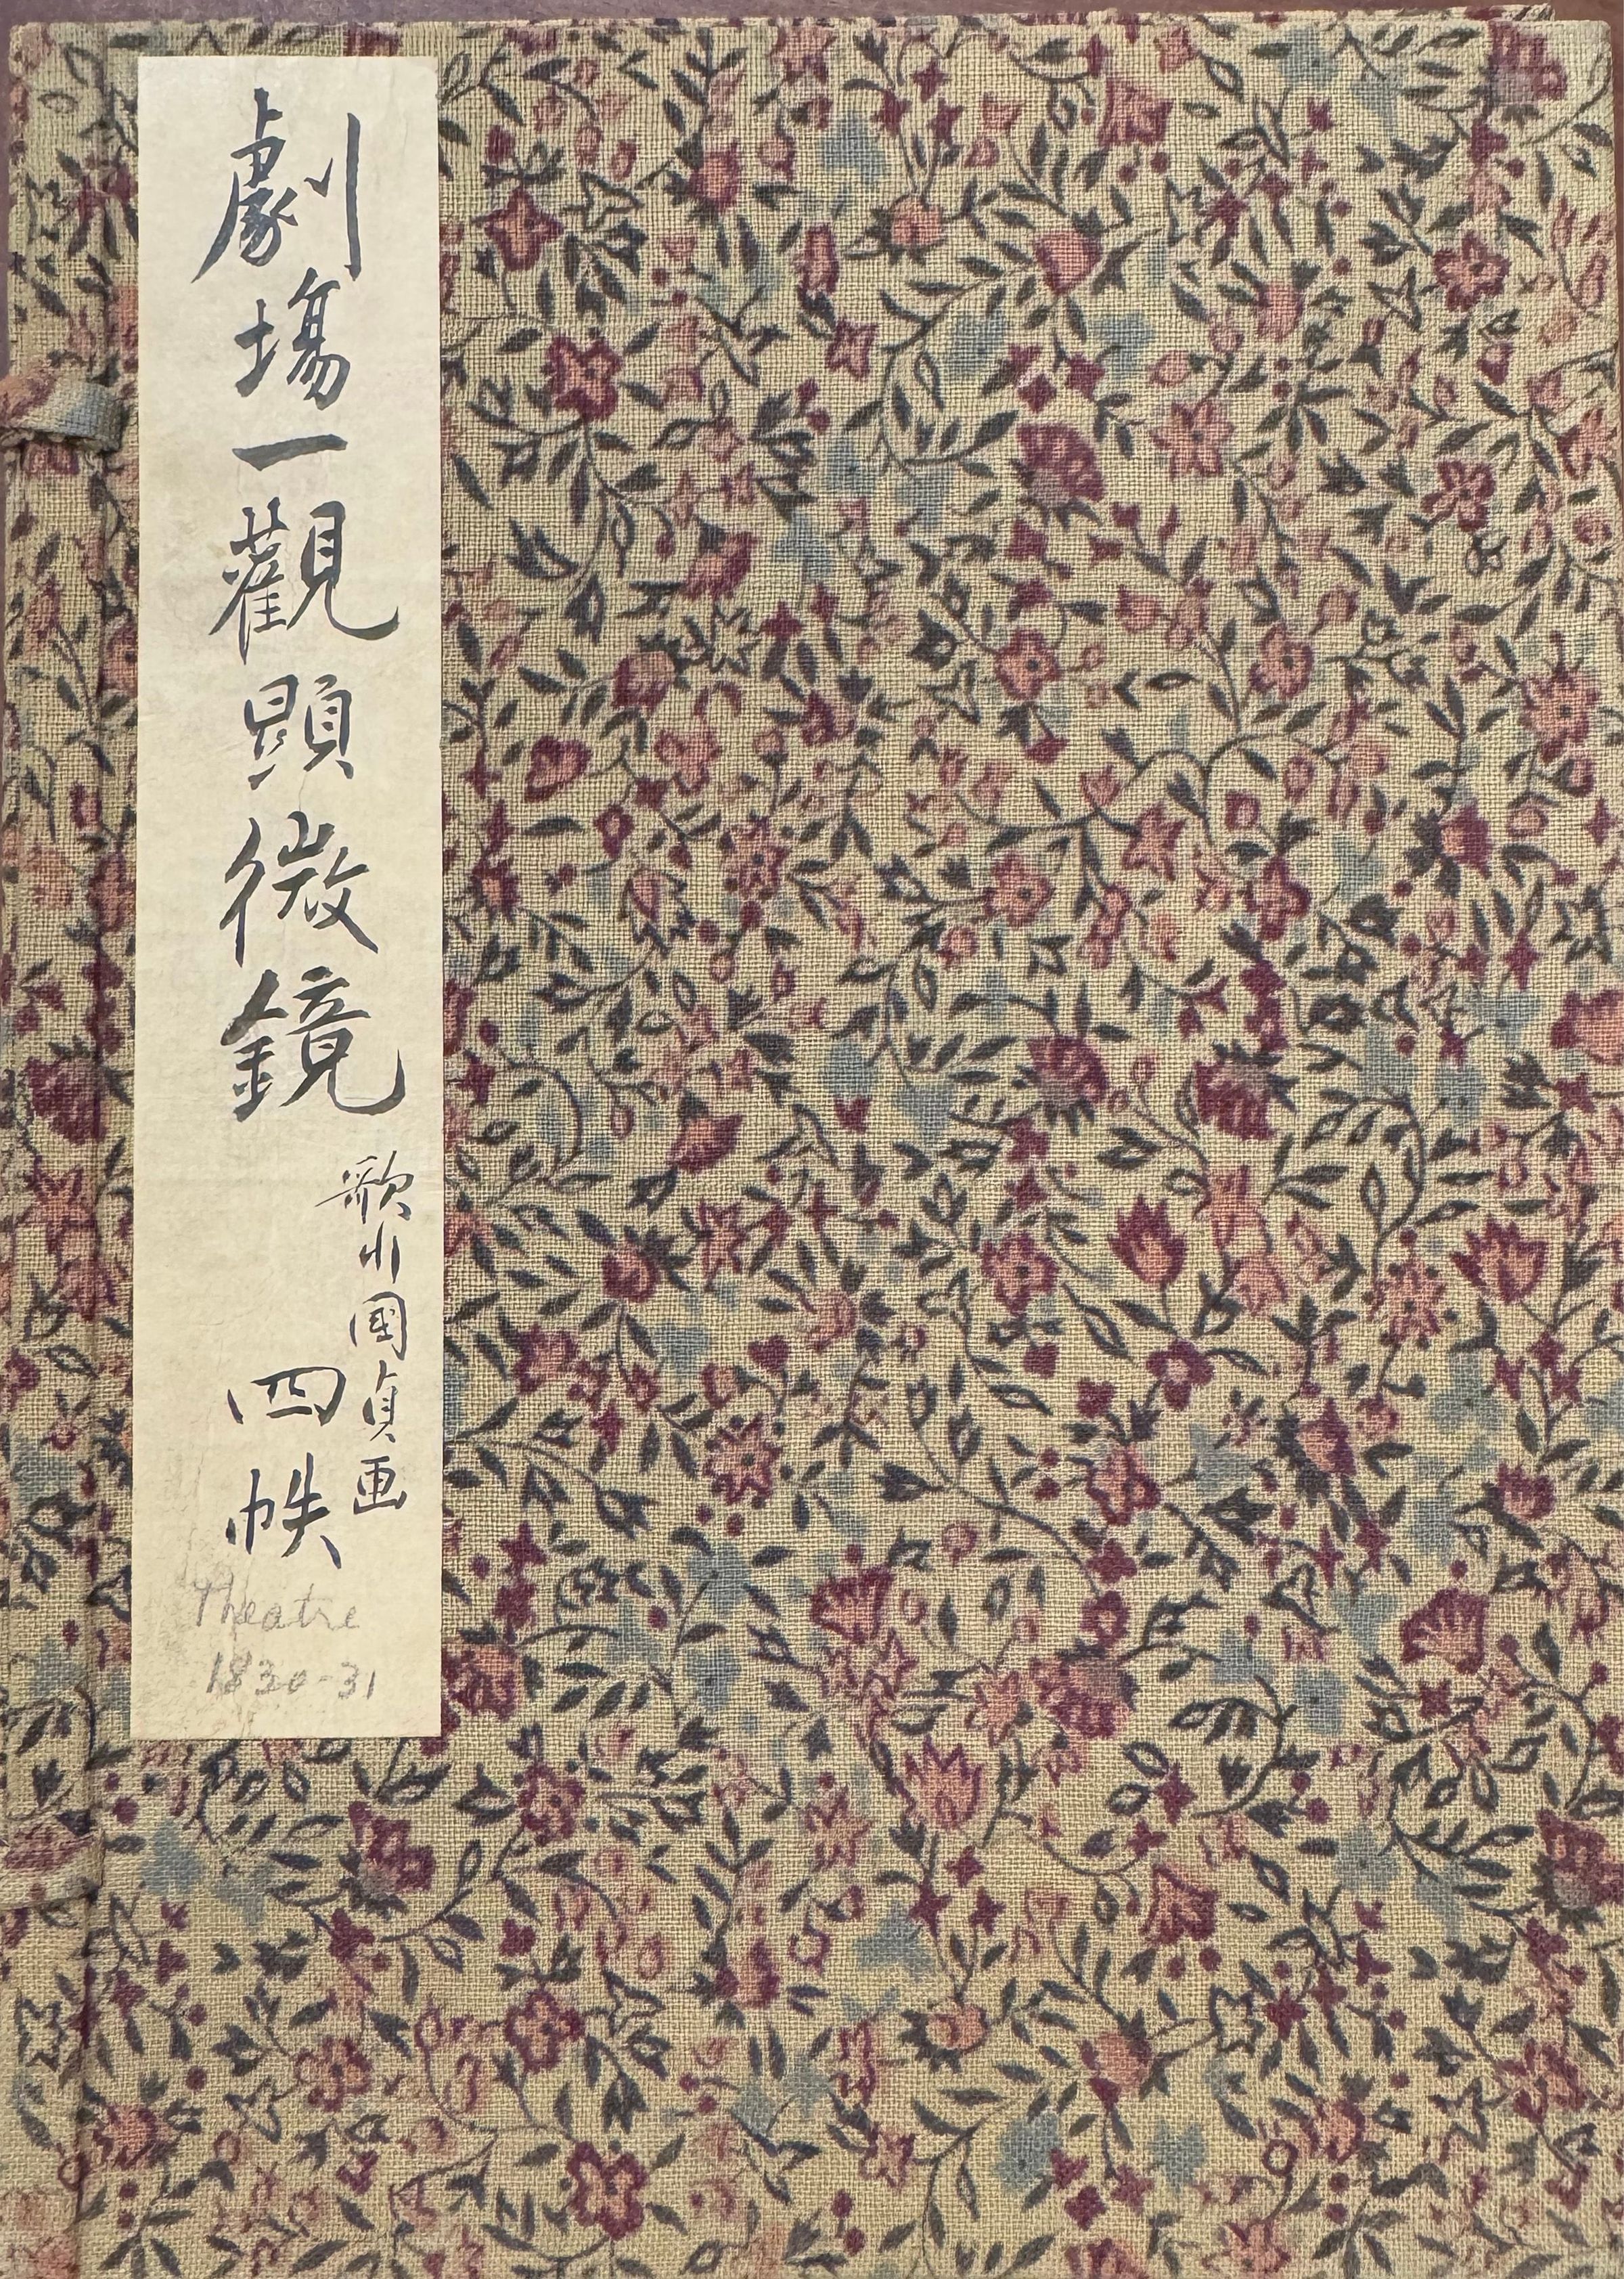 劇場一觀顕微鏡
歌川國貞画
四帙
Theatre
1830-31